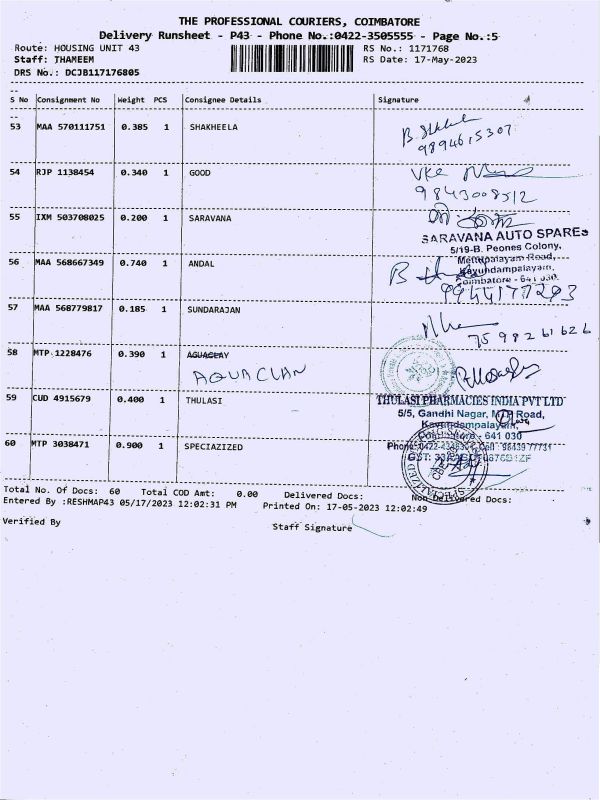 THE PROFESSIONAL COURIERS, COIMBATORE
Delivery Runsheet - P43 - Phone No.:0422-3505555 - Page No.:5
Route: HOUSING UNIT 43 RS No.: 1171768
Staff: THAMEEM RS Date: 17-May-2023
DRS No.: DCJB117176805
S No Consignment No Weight PCS Consignee Details Signature
53 MAA 570111751 0.385 1 SHAKHEELA
9894615307
54 RJP 1138454 0.340 1 GOOD
9843008512
55 IXM 503708025 0.200 1 SARAVANA
SARAVANA AUTO SPARES
5/19-B, Peones Colony,
Mettupalayam Road,
Kavundampalayam,
Coimbatore - 641 030.
56 MAA 568667349 0.740 1 ANDAL
9944177293
57 MAA 568779817 0.185 1 SUNDARAJAN
7598261626
58 MTP 1228476 0.390 1 AGUACLAY
AQUACLAN
59 CUD 4915679 0.400 1 THULASI
THULASI PHARMACIES INDIA PVT LTD
5/5, Gandhi Nagar, MTP Road,
Kavundampalayam,
Coimbatore - 641 030
60 MTP 3038471 0.900 1 SPECIAZIZED
Total No. Of Docs: 60 Total COD Amt: 0.00 Delivered Docs: Non-Delivered Docs:
Entered By :RESHMAP43 05/17/2023 12:02:31 PM Printed On: 17-05-2023 12:02:49
Verified By Staff Signature